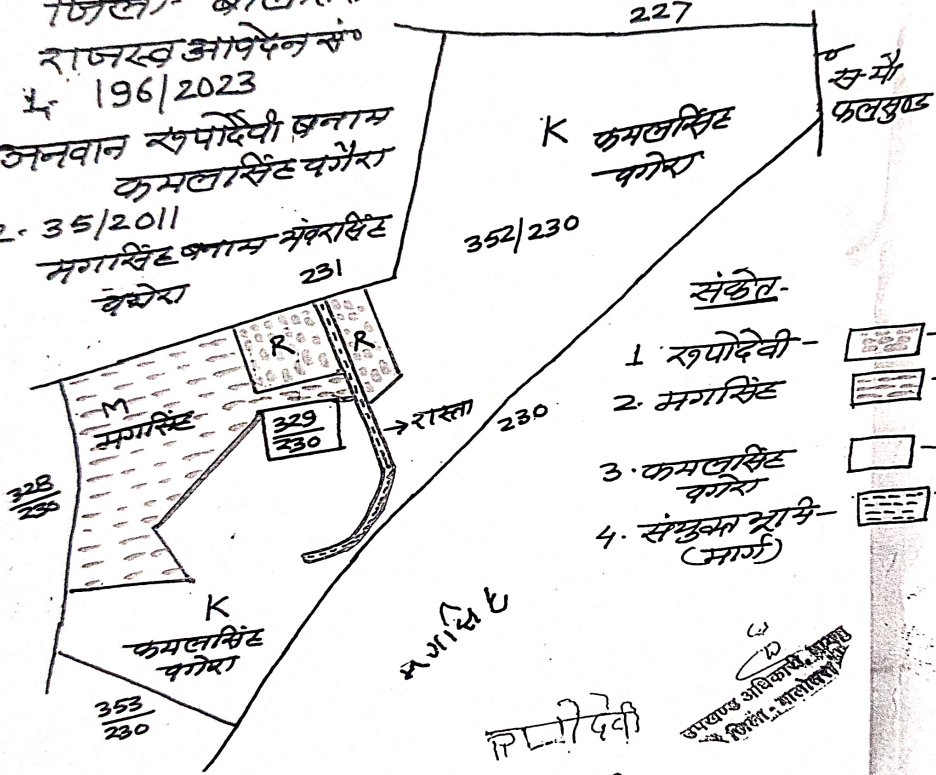 जिला-
राजस्व आवेदन सं०
1. 196/2023
अनवान रूपोदेवी बनाम
कमलसिंह वगैरा
2. 35/2011
मगसिंह बनाम भंवरसिंह
वगैरा
227
स-मौ
फलसुण्ड
K कमलसिंह
वगेरा
352/230
231
R
R
M
मगसिंह
329
230
→रास्ता
230
328
230
K
कमलसिंह
वगेरा
353
230
संकेत-
1 रूपोदेवी-
2. मगसिंह
3. कमलसिंह
वगेरा
4. संयुक्त भूमि-
(मार्ग)
मगसिंह
देवी
उपखण्ड अधिकारी,
जिला-